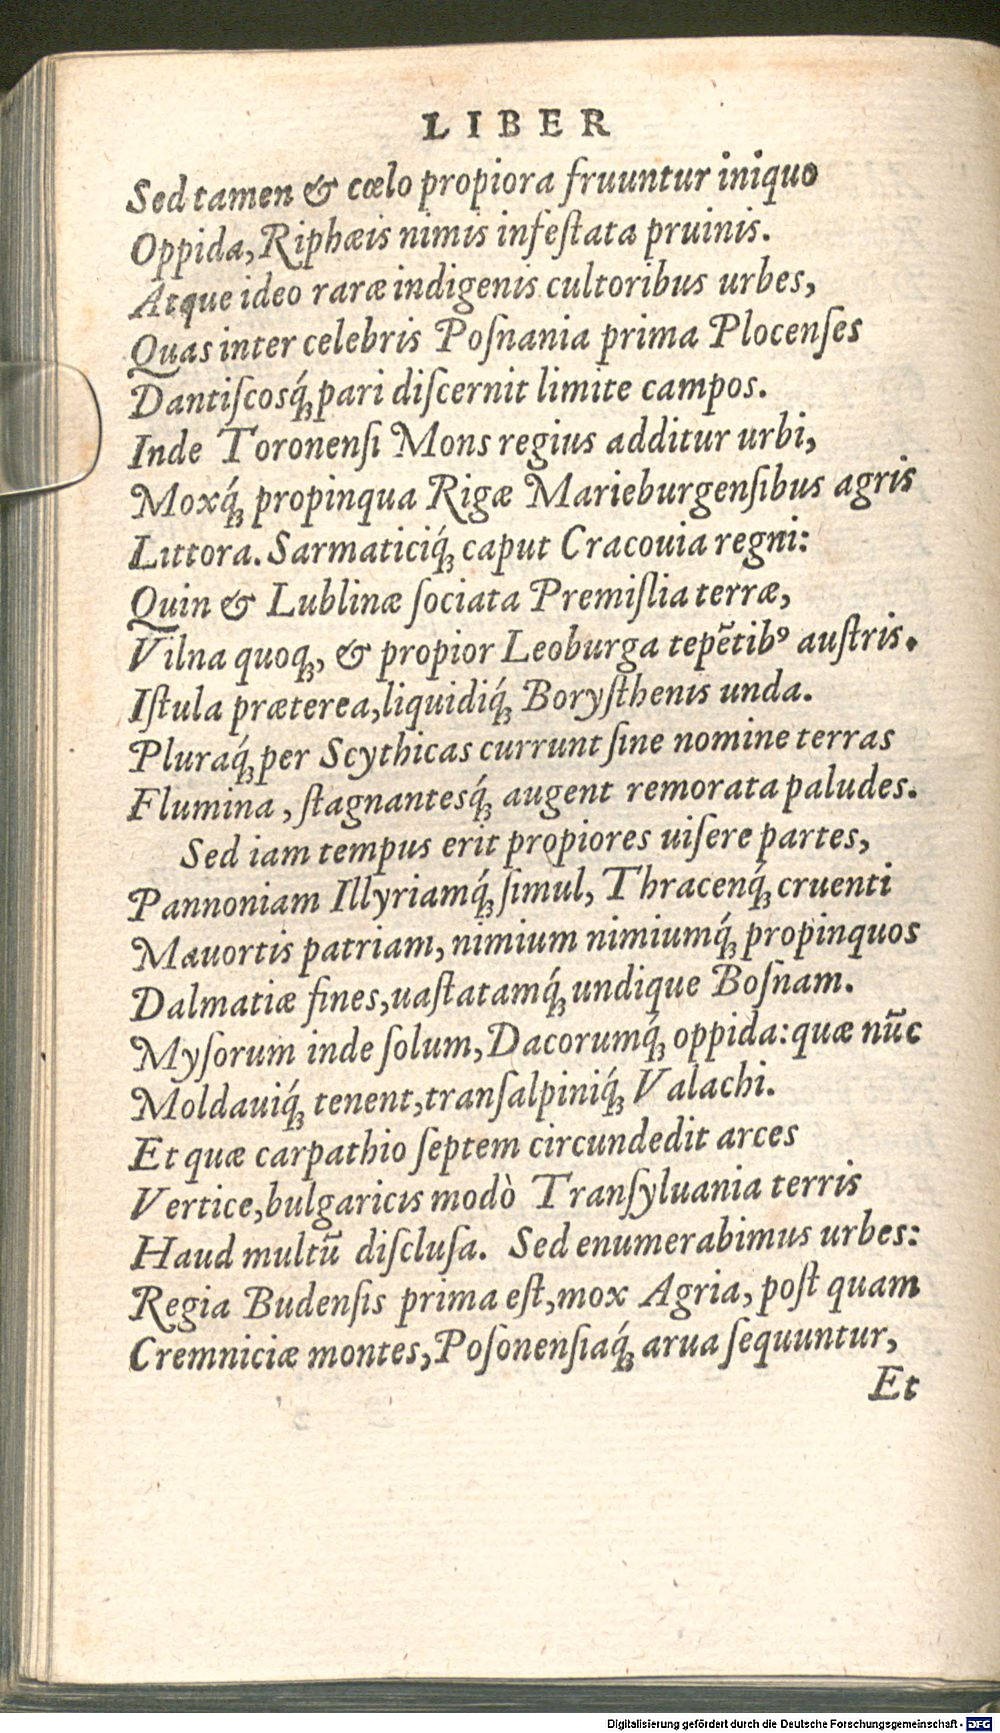 LIBER
Sed tamen & cœlo propiora fruuntur iniquo
Oppida, Riphæis nimis infeſtata pruinis.
Atque ideo raræ indigenis cultoribus urbes,
Quas inter celebris Poſnania prima Plocenſes
Dantiſcosq́ꝫ pari diſcernit limite campos.
Inde Toronenſi Mons regius additur urbi,
Moxq́ꝫ propinqua Rigæ Marieburgenſibus agris
Littora. Sarmaticiq́ꝫ caput Cracouia regni:
Quin & Lublinæ ſociata Premiſlia terræ,
Vilna quoqꝫ, & propior Leoburga tepẽtibꝰ auſtris.
Iſtula præterea, liquidiq́ꝫ Boryſthenis unda.
Pluraq́ꝫ per Scythicas currunt ſine nomine terras
Flumina, ſtagnantesq́ꝫ augent remorata paludes.
Sed iam tempus erit propiores uiſere partes,
Pannoniam Illyriamq́ꝫ ſimul, Thracenq́ꝫ cruenti
Mauortis patriam, nimium nimiumq́ꝫ propinquos
Dalmatiæ fines, uaſtatamq́ꝫ undique Boſnam.
Myſorum inde ſolum, Dacorumq́ꝫ oppida: quæ nũc
Moldauiq́ꝫ tenent, tranſalpiniq́ꝫ Valachi.
Et quæ carpathio ſeptem circundedit arces
Vertice, bulgaricis modò Tranſyluania terris
Haud multũ diſcluſa. Sed enumerabimus urbes:
Regia Budenſis prima eſt, mox Agria, poſt quam
Cremniciæ montes, Poſonenſiaq́ꝫ arua ſequuntur,
Et
Digitalisierung gefördert durch die Deutsche Forschungsgemeinschaft - DFG